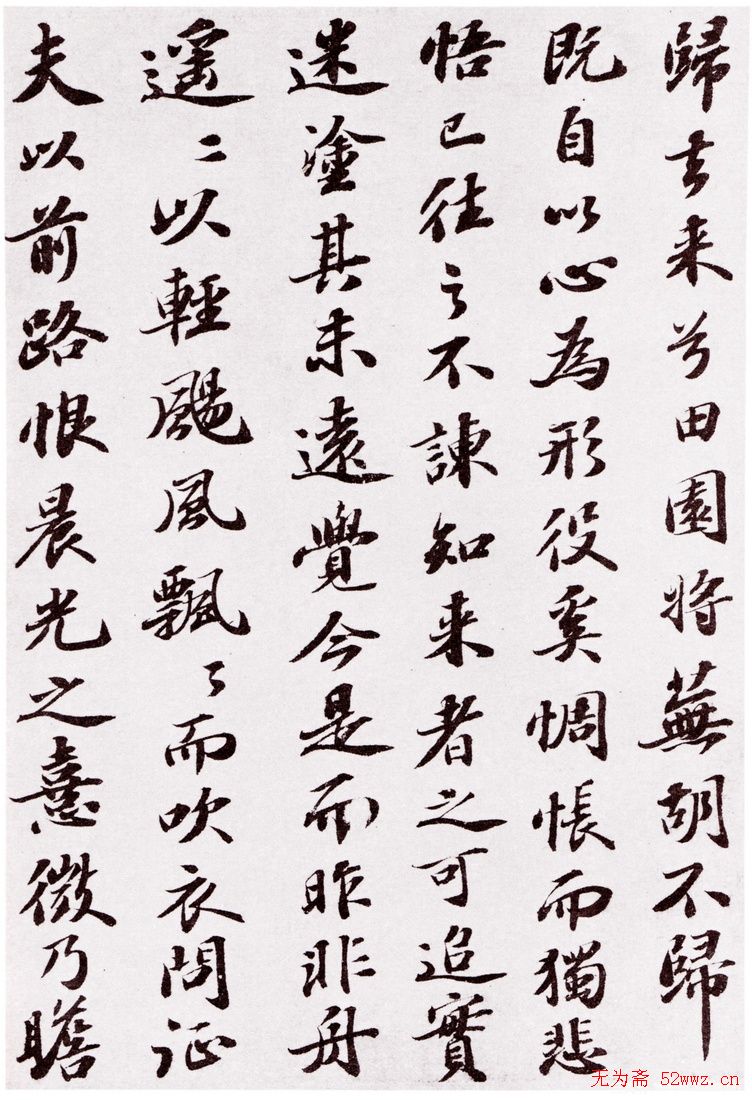 歸去来兮田園将蕪胡不歸
既自以心為形役奚惆悵而獨悲
悟已往之不諫知来者之可追實
迷塗其未遠覺今是而昨非舟
遥〻以輕颺風飄〻而吹衣問征
夫以前路恨晨光之熹微乃瞻
无为斋 52wwz.cn